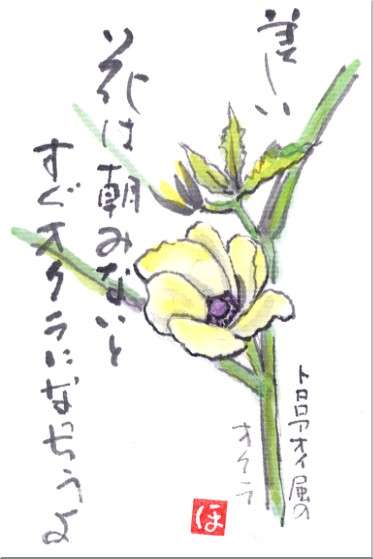 美しい
花は朝みないと
すぐオクラになっちうよ
トロロアオイ属の
オクラ
ほ